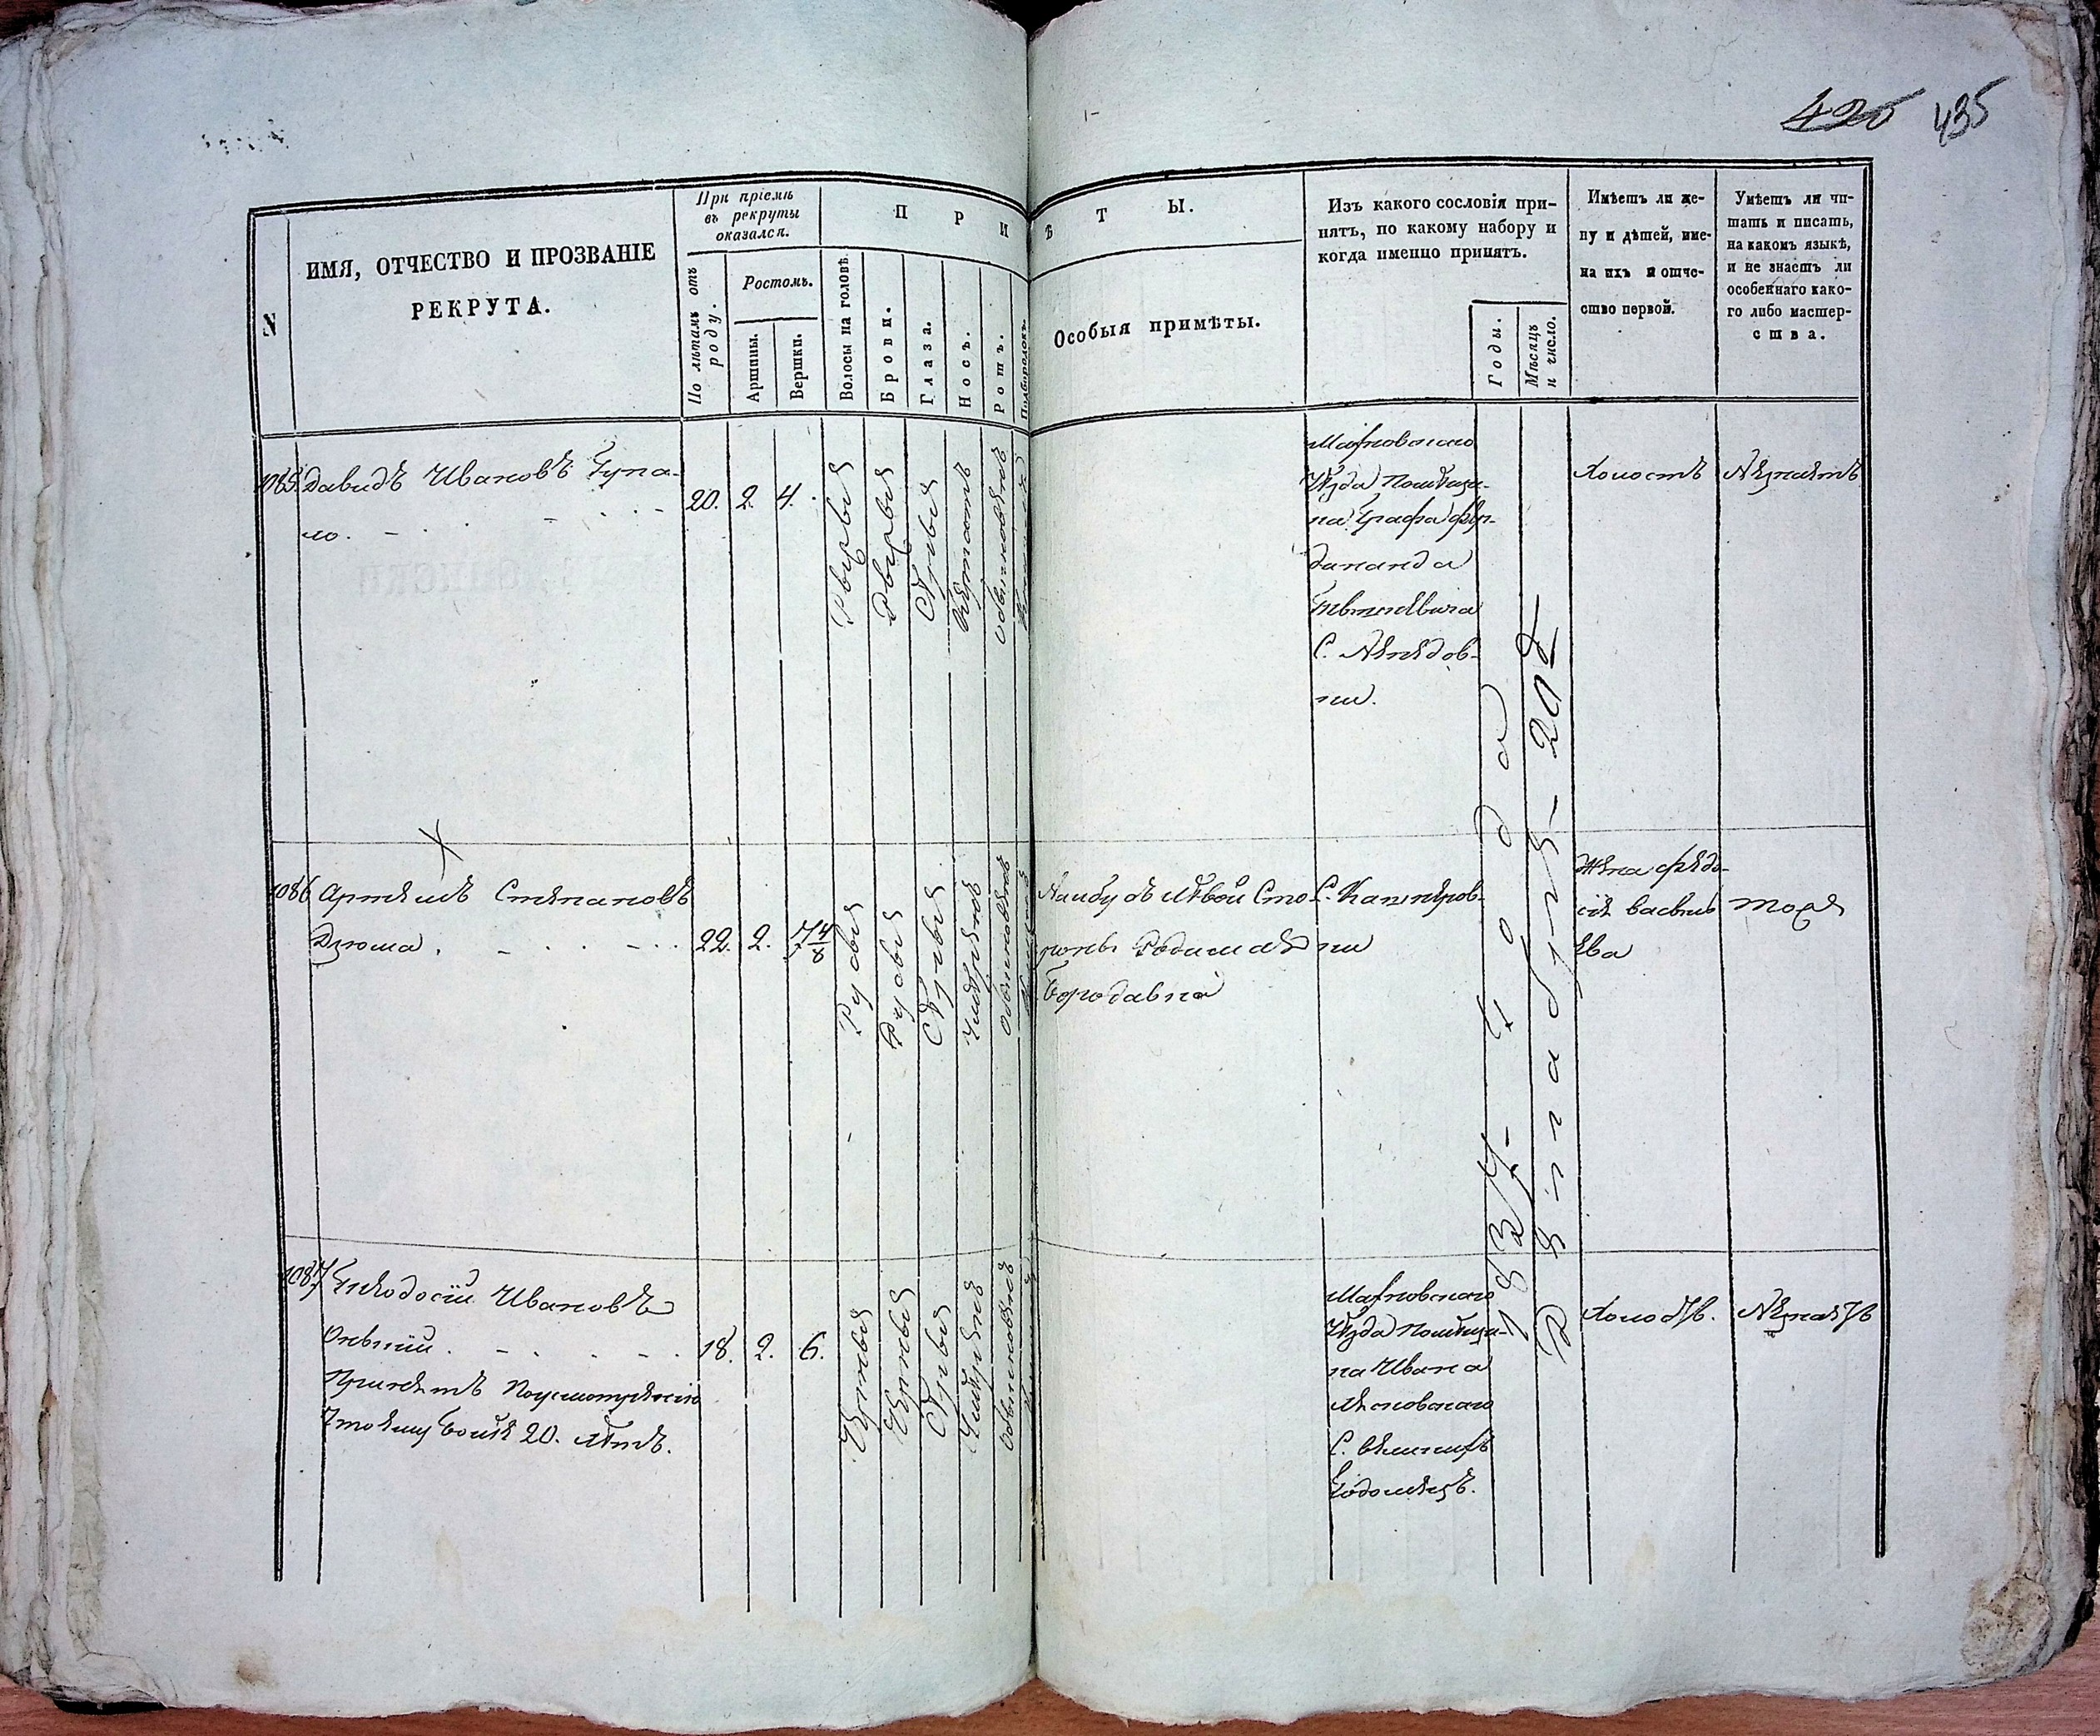 420 435
N
ИМЯ, ОТЧЕСТВО И ПРОЗВАНІЕ
РЕКРУТА.
При пріемѣ
въ рекруты
оказался.
По лѣтамъ отъ
роду.
Ростомъ.
Аршины.
Вершки.
ПРИМѢТЫ.
Волосы на головѣ.
Брови.
Глаза.
Носъ.
Ротъ.
Подбородокъ.
Особыя примѣты.
Изъ какого сословія при-
нятъ, по какому набору и
когда именно принятъ.
Годы.
Мѣсяцъ
и число.
Имѣетъ ли же-
ну и дѣтей, име-
на ихъ и отче-
ство первой.
Умѣетъ ли чи-
тать и писать,
на какомъ языкѣ,
и не знаетъ ли
особеннаго како-
го либо мастер-
ства.
1085. Давидъ Ивановъ Гупа-
ло.
20. 2. 4.
Сѣрыя
обыкновенъ
уѣзда Помѣщи-
ка Графа Фер-
динанда
С.
ки.
Холостъ
Незнаетъ
1086 Артемъ Степановъ
Дзюма.
22. 2. 7 4/8
Русыя
Русыя
Сѣрыя
Умѣренъ
Обыкновенъ
На лбу съ лѣвой Сто-
роны Родимая
Бородавка
С.
ки
Жена Федо-
сія Василь
ева
тоже
1087 Феодосій Ивановъ
Принятъ По усмотренію
Что ему Болѣе 20. лѣтъ.
18. 2. 6.
Черныя
Черныя
Сѣрыя
Умѣренъ
Обыкновенъ
уѣзда Помѣщи-
ка Ивана
С.
Холостъ.
Незнаетъ
1834 Года
Декабря 20